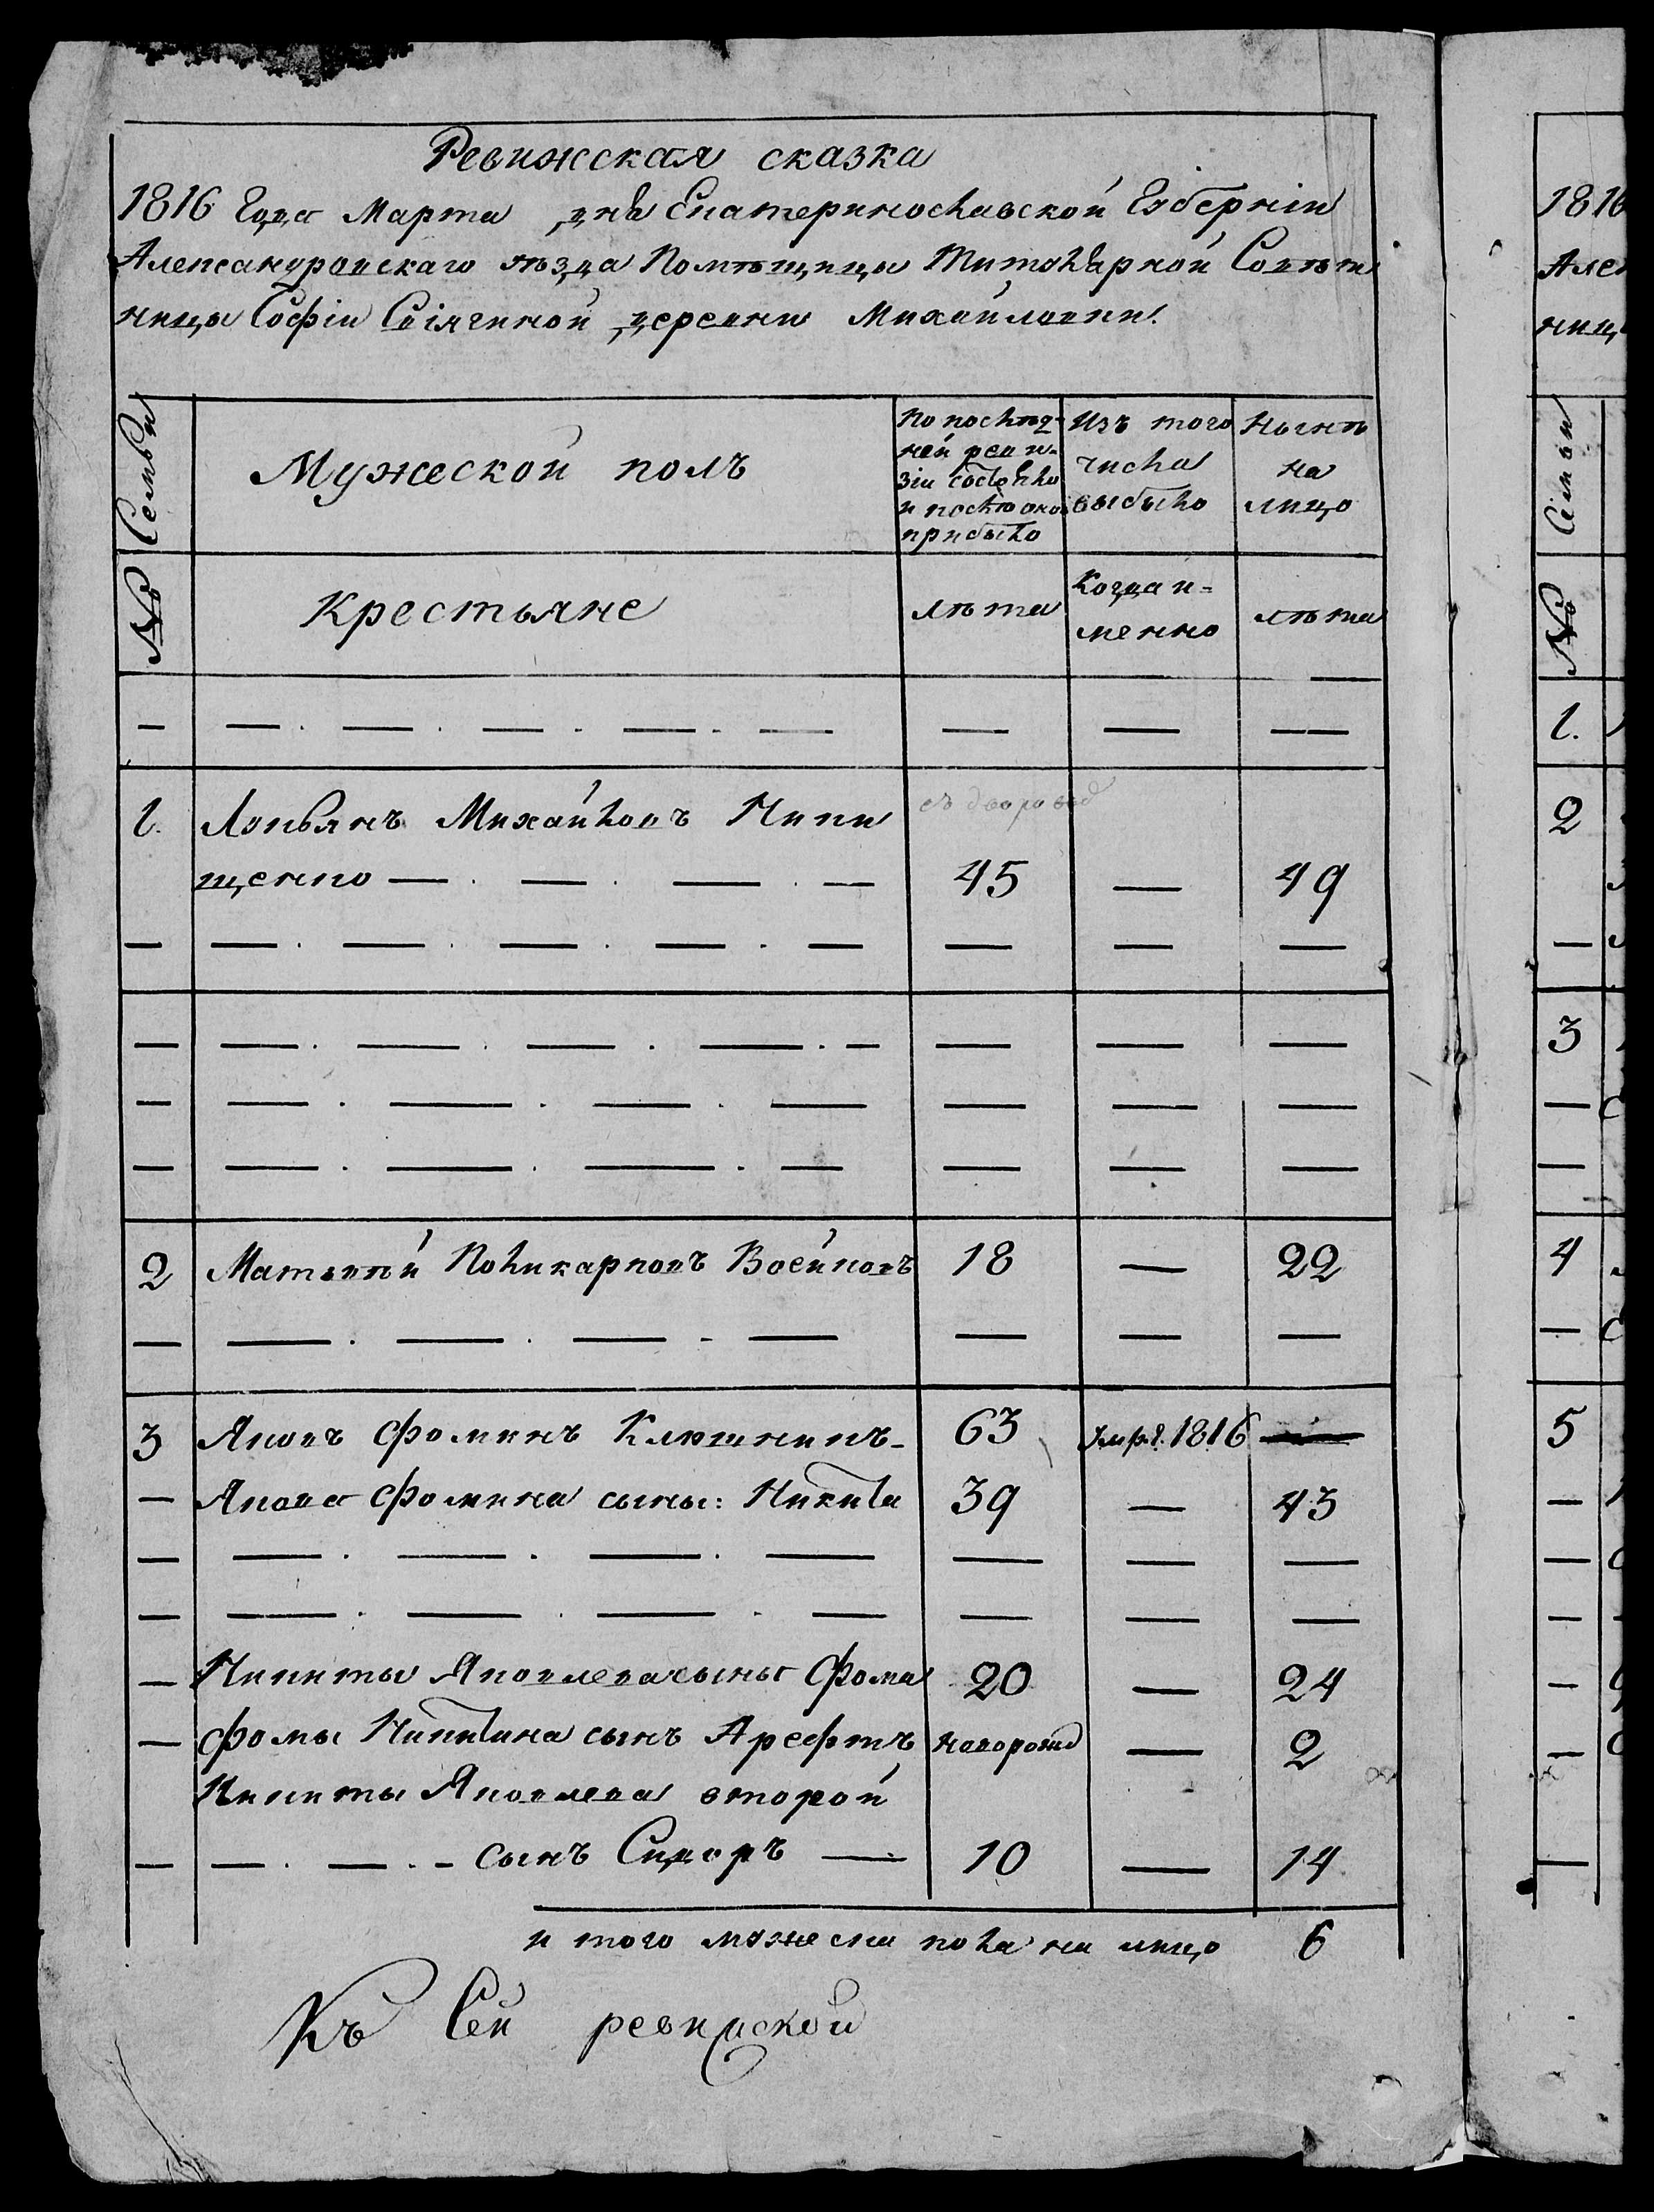 Ревижская сказка
1816 Года Марта дня Екатериносlавской Губерніи
Александровскаго уѣзда Помѣщицы Титоlярной Совѣт
ницы Софіи деревни Михайловки.
Семьи
Мужеской полъ
По послѣд-
ней реви-
зіи состояло
и послѣ оной
прибыло
Изъ того
числа
выбыло
Нынѣ
на
лицо
№
Крестьяне
лѣта
Когда и-
менно
лѣта
— — . — . — . — . — — — —
1. Лукьянъ Михайловъ Ники
щенко — . — . — . — 45 — 49
— — . — . — . — . — — — —
— — . — . — . — . — — — —
— — . — . — . — — — —
— — . — . — . — — — —
2 Матвѣй Поликарповъ Войновъ 18 — 22
— — . — . — - — — — —
3 Яковъ Фоминъ Ключникъ- 63 Умр. 1816
— Якова Фомина сыны: Никита 39 — 43
— — . — . — . — — — —
— — . — . — . — — — —
— Никиты Яковлева сынъ Фома 20 — 24
— Фомы Никитина сынъ Арефтъ новорожд — 2
Никиты Яковлева второй
— — . — . - сынъ Сидоръ — 10 — 14
и того мужеска пола на лицо 6
Къ Сей ревиской
1816
Алек
ниц
Семьи
№
1.
2
—
3
—
—
4
—
5
—
—
—
—
—
—